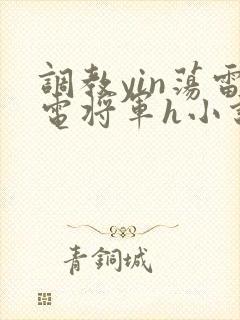 調教yin蕩雷
電将軍h小
青銅城